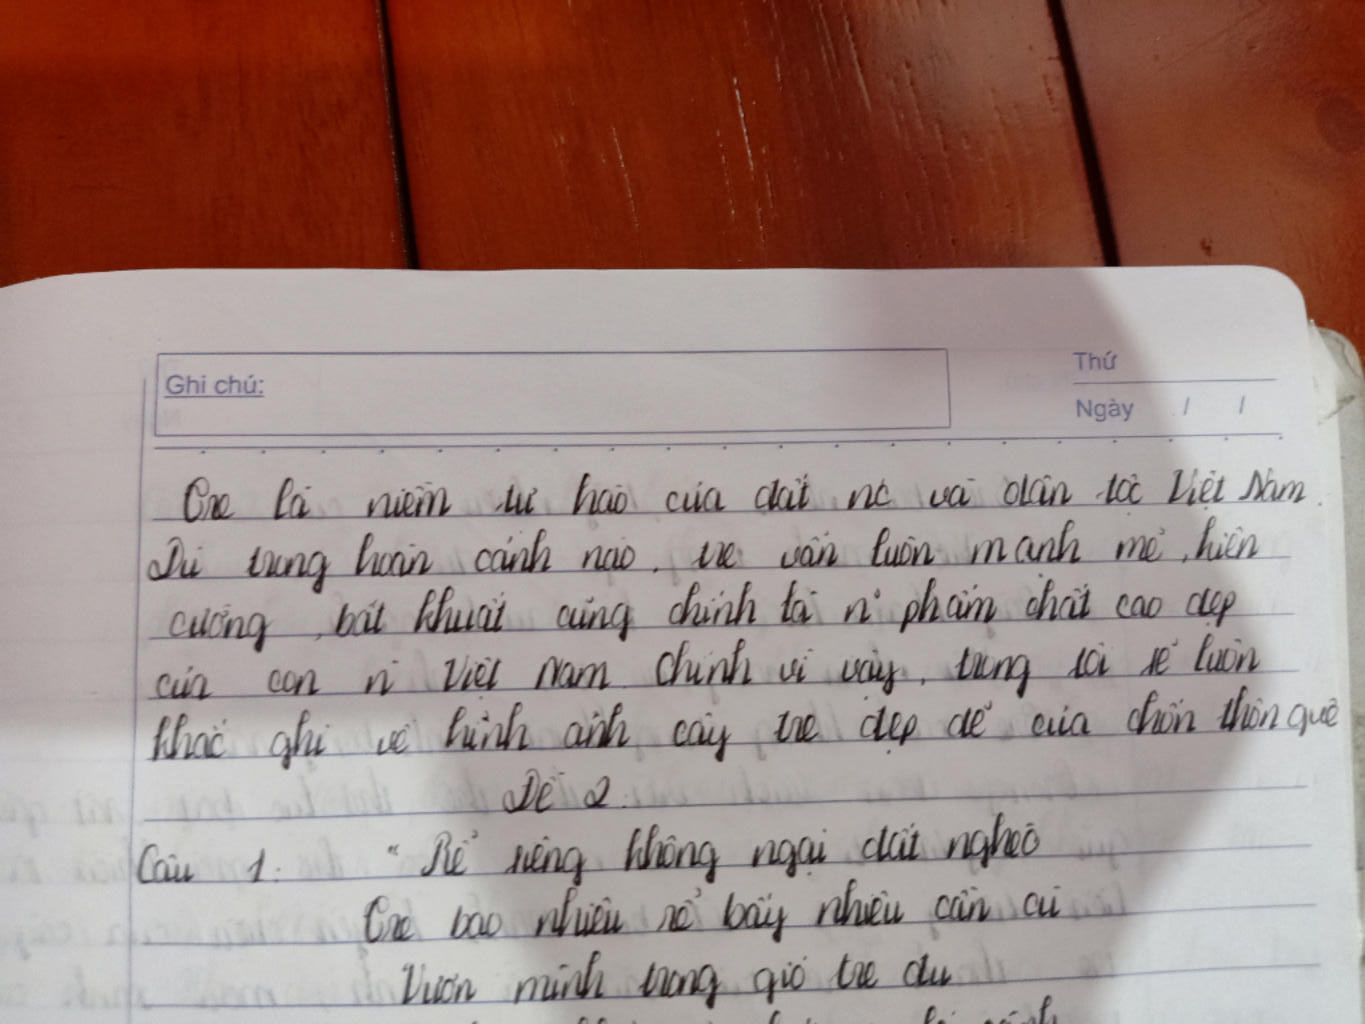 Ghi chú:
Thứ
Ngày / /
Tre là niềm tự hào của đất nc và dân tộc Việt Nam.
Dù trong hoàn cảnh nào, tre vẫn luôn mạnh mẽ, kiên
cường, bất khuất cũng chính là n~ phẩm chất cao đẹp
của con n Việt Nam. Chính vì vậy, trong tôi sẽ luôn
khắc ghi về hình ảnh cây tre đẹp đẽ của chốn thôn quê
Đề 2.
Câu 1: "Rễ siêng không ngại đất nghèo
Tre bao nhiêu rễ bấy nhiêu cần cù
Vươn mình trong gió tre đu